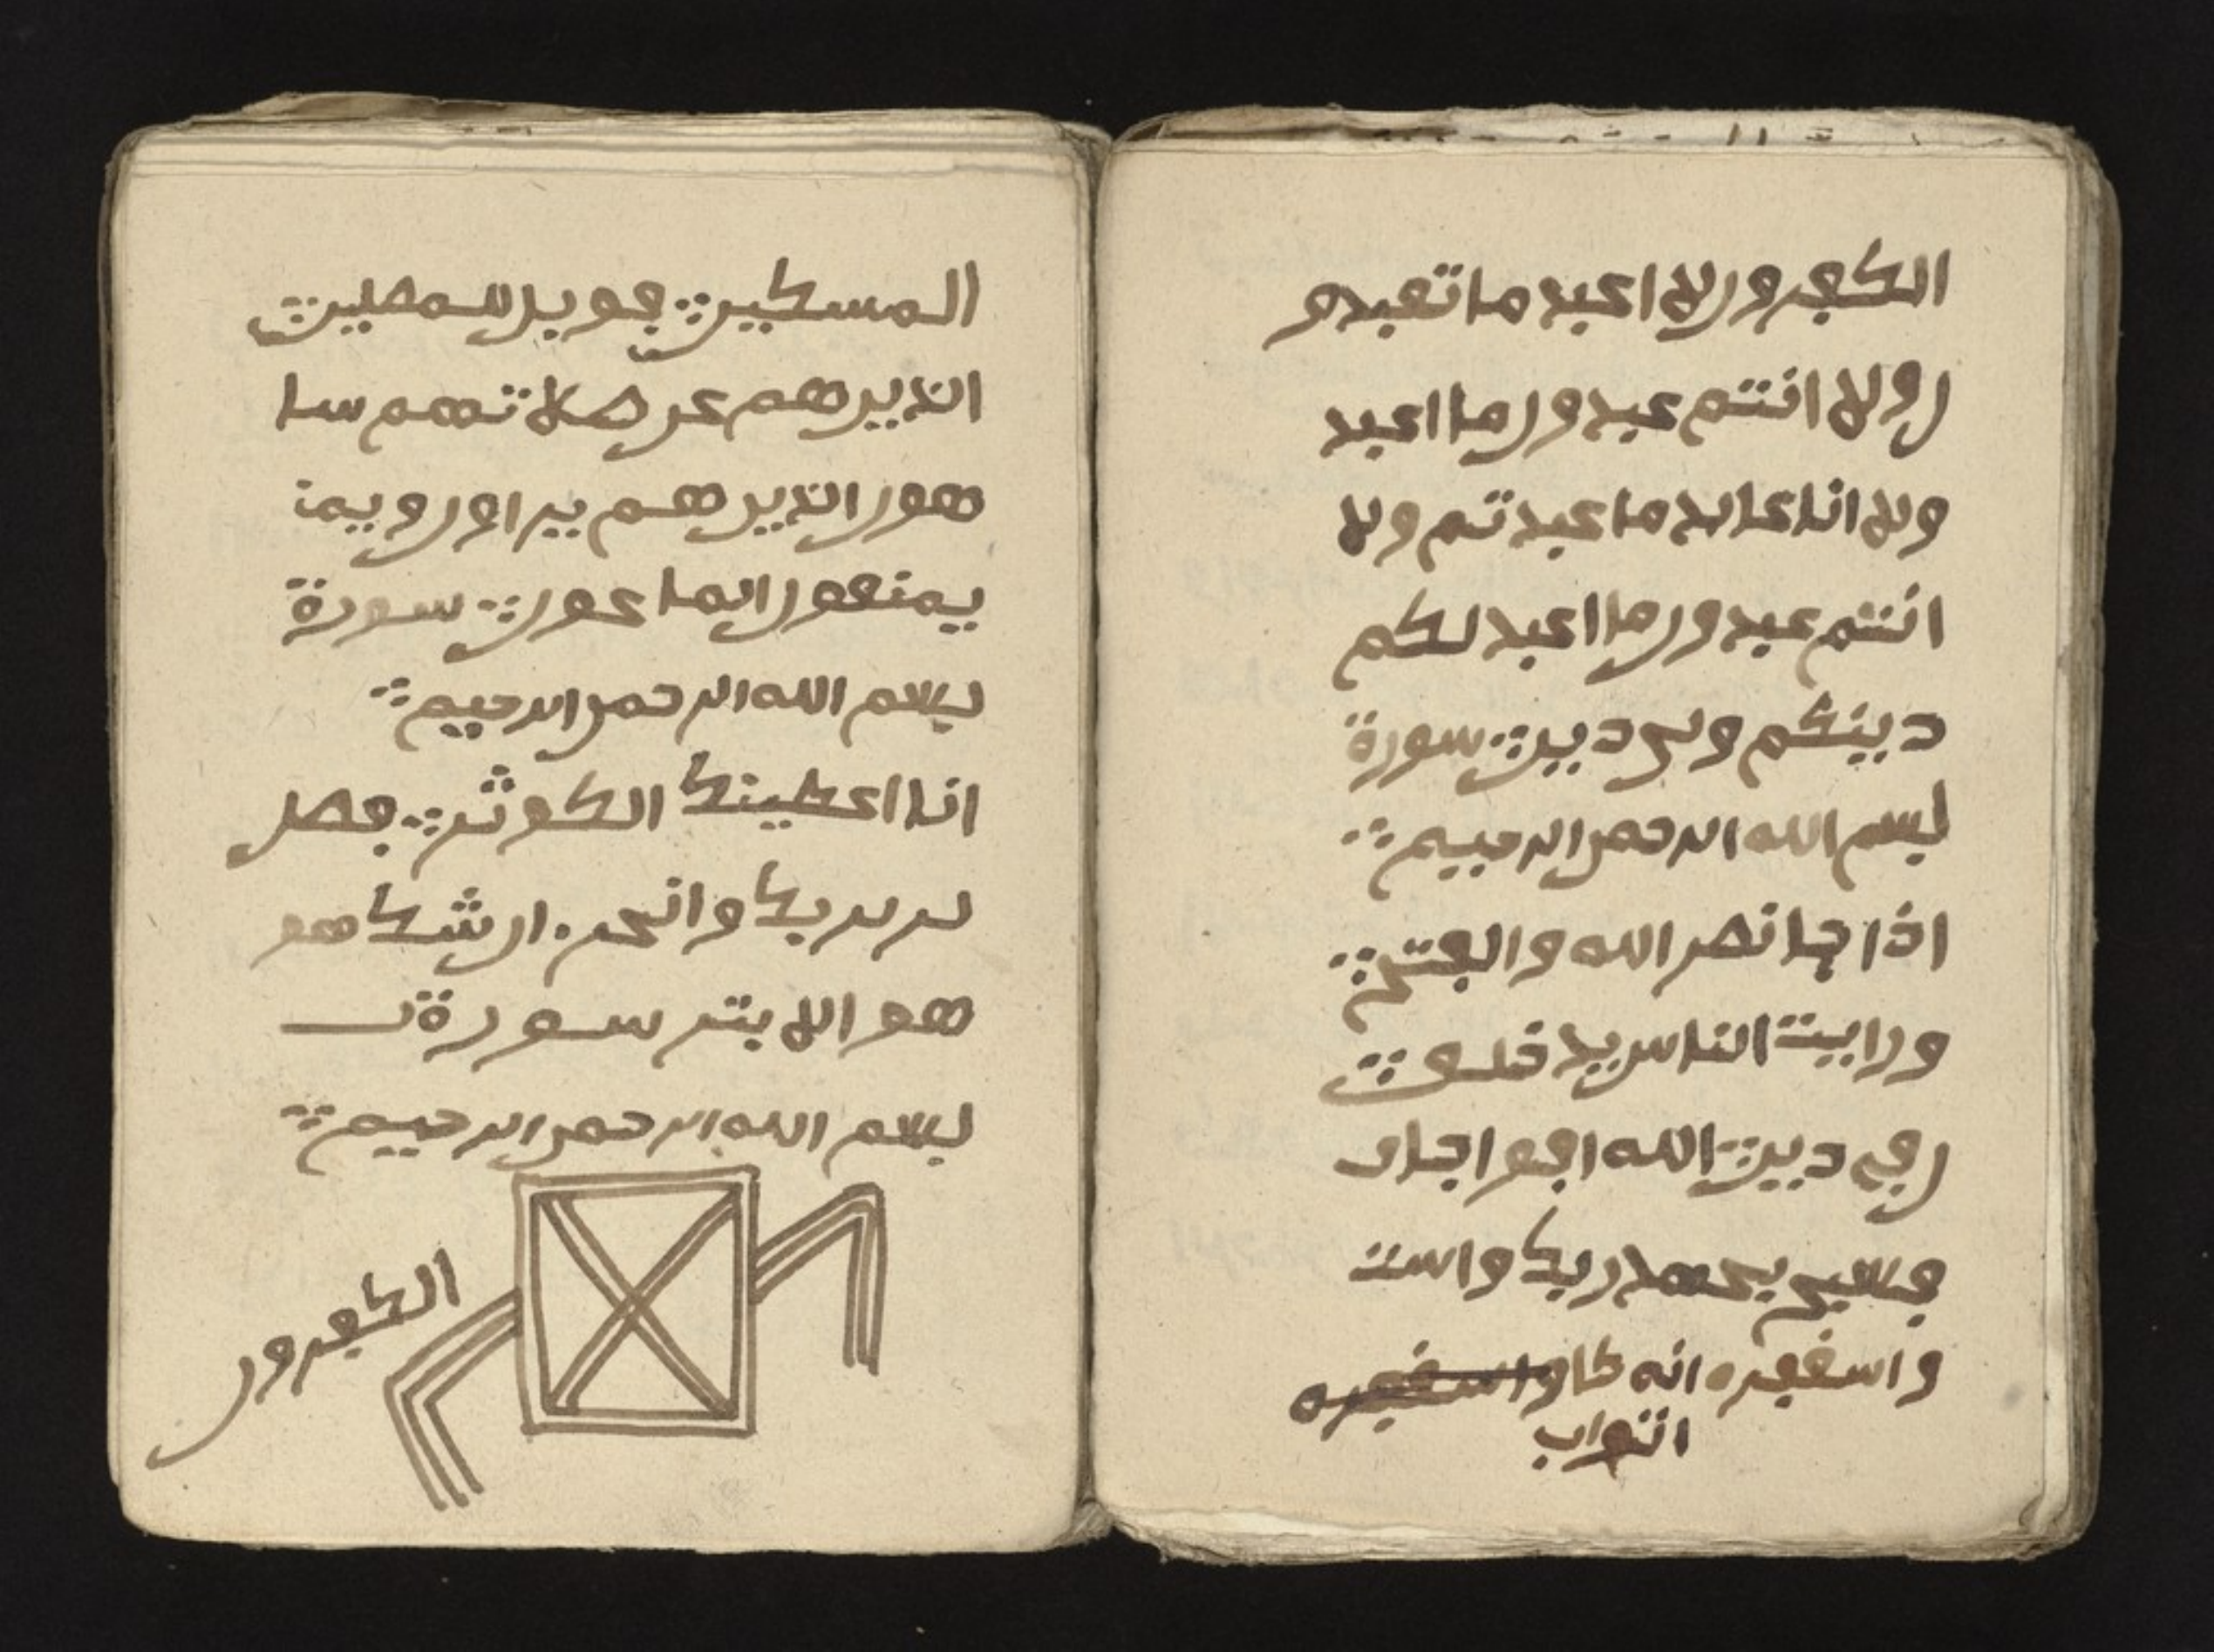 المسكين فويل للمصلين
الذين هم عن صلاتهم سا
هون الذين هم يراون ويمن
يمنعون الماعون سورة
بسم الله الرحمن الرحيم
انا اعطينك الكوثر فصل
لربربك وانحر ان شك هو
هو الابتر سورة
بسم الله الرحمن الرحيم
الكفرون
الكفرون لا اعبد ما تعبدو
ن ولا انتم عبدون ما اعبد
ولا انا عابد ما عبدتم ولا
انتم عبدون ما اعبد لكم
دينكم ولي دين سورة
بسم الله الرحمن الرحيم
اذا جا نصر الله والفتح
ورايت الناس يدخلون
ن في دين الله افواجا ف
فسبح بحمد ربك واست
واسغفره انه كا واسغفره
التواب